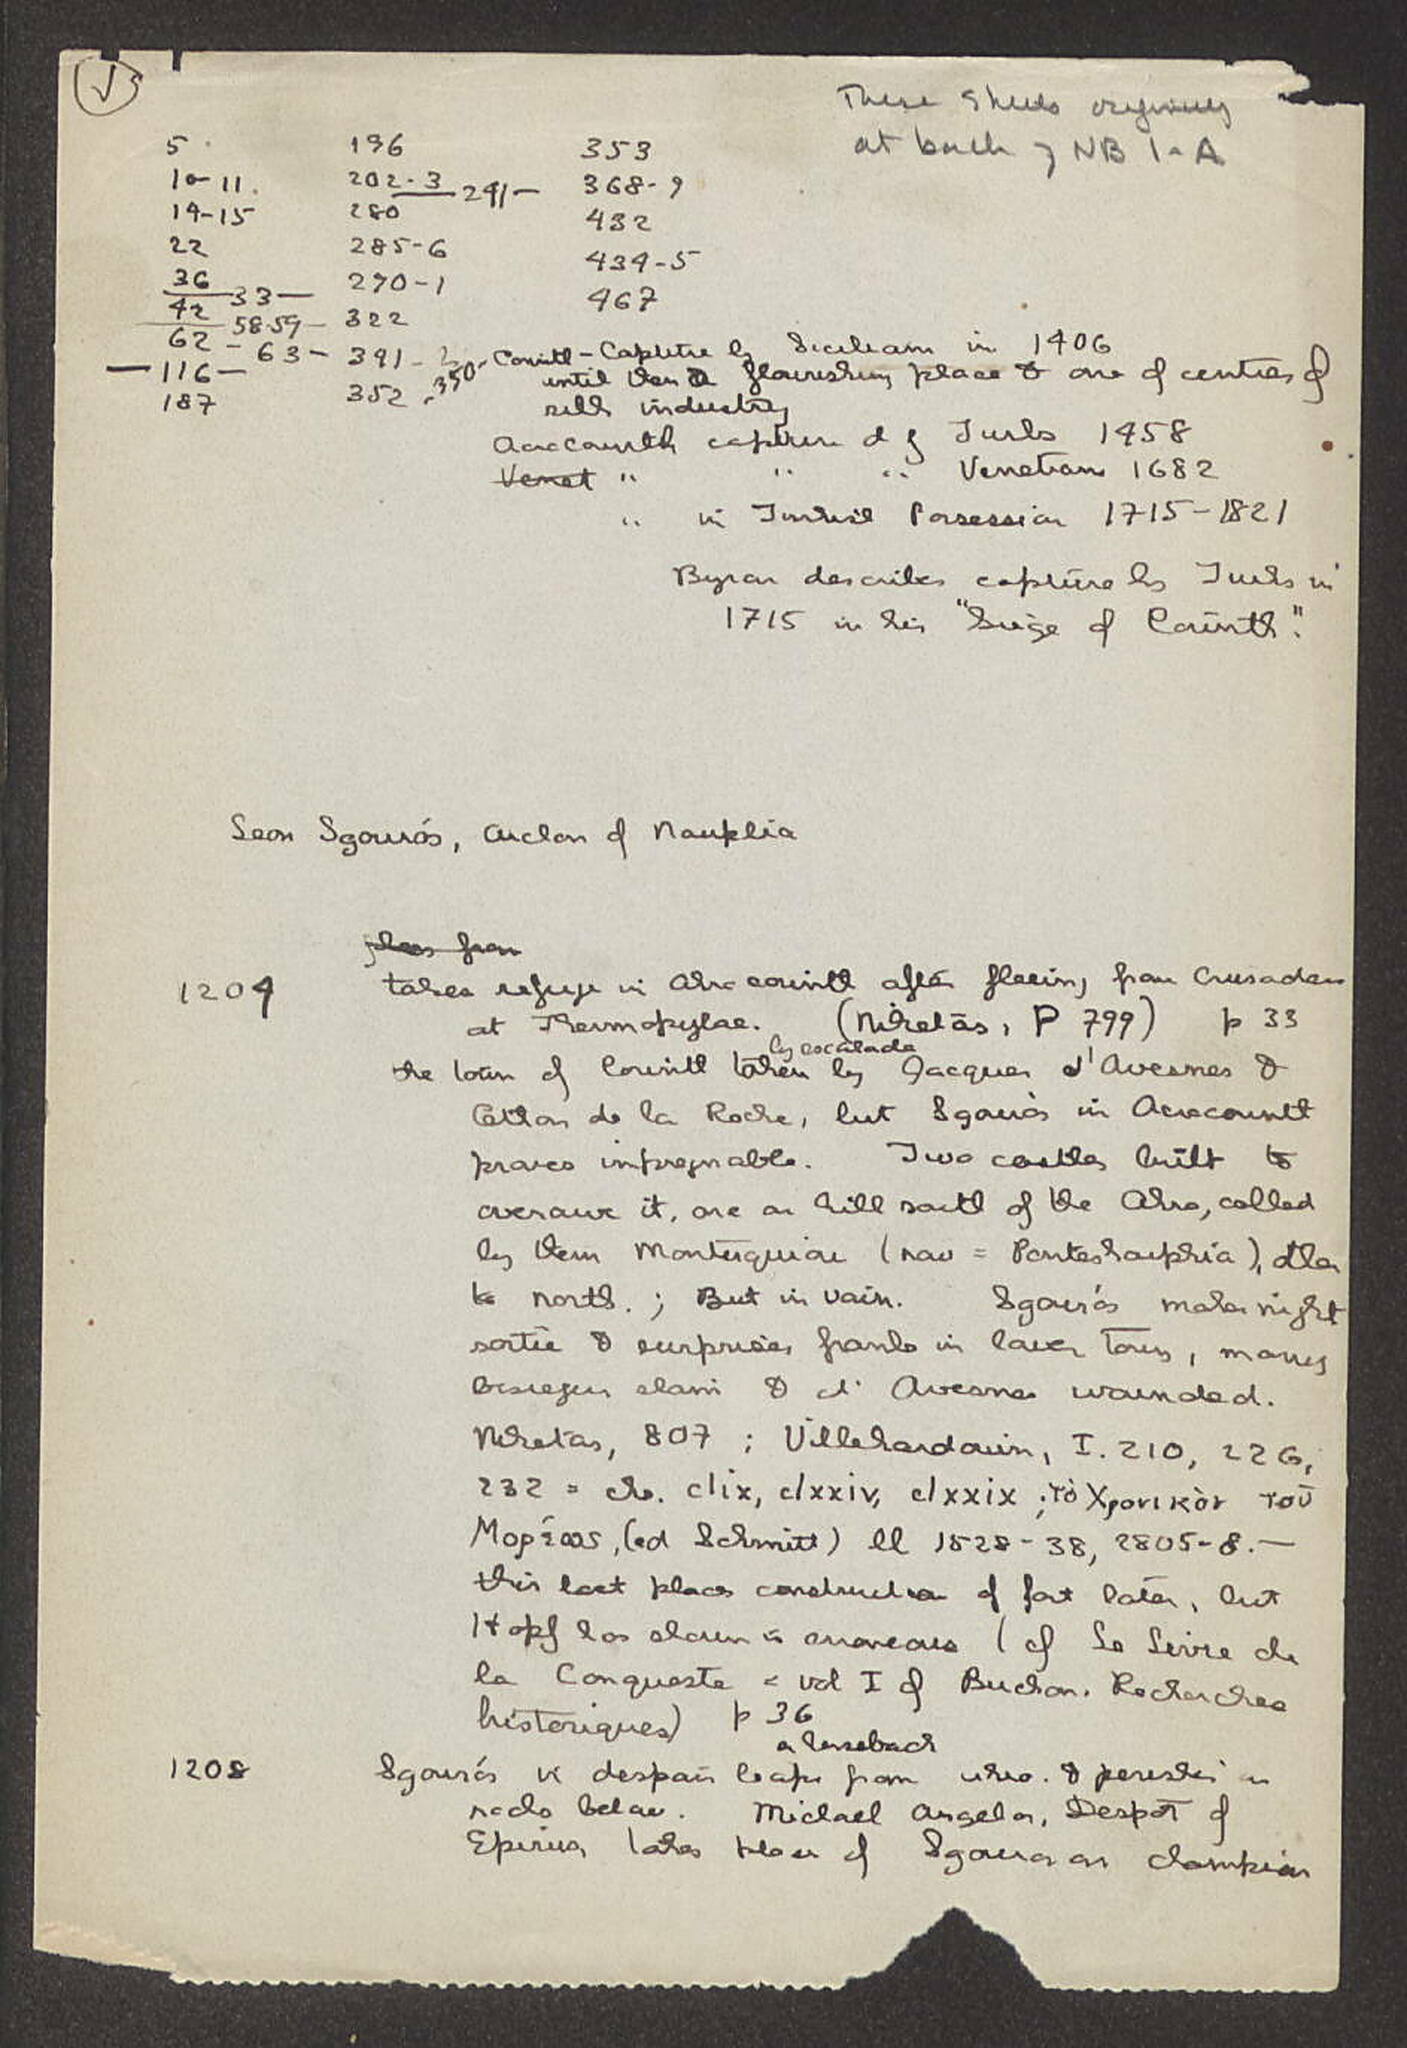 These sheets originally
at back of NB 1-A
5 196 353
10-11. 202-3 291- 368-9
14-15 280 432
22 285-6 434-5
36 33- 290-1 467
42 58-59- 322
62 - 63 - 391 -
- 116 - 352 - 350
187
Corinth - Capture by Sicilians in 1406
until then a flourishing place & one of centres of
silk industry
Acrocorinth captured by Turks 1458
Venet " " " Venetians 1682
" in Turkish Possession 1715-1821
Byron describes capture by Turks in
1715 in his "Siege of Corinth".
Leon Sgourós, archon of Nauplia
flees from
1204 takes refuge in Akrocorinth after fleeing from Crusaders
at Thermopylae. (Niketas, P 799) p 33
by escalade
the town of Corinth taken by Jacques d'Avesnes &
Othon de la Roche, but Sgourós in Acrocorinth
proves impregnable. Two castles built to
overawe it, one on hill south of the Akro, called
by them Montesquiou (now = Penteskouphia), other
to north. ; But in vain. Sgourós makes night
sortie & surprises franks in lower town, many
besiegers slain & d'Avesnes wounded.
Niketas, 807 ; Villehardouin, I. 210, 226,
232 = ch. clix, clxxiv, clxxix ; τὸ Χρονικὸν τοῦ
Μορέως, (ed Schmitt) ll 1528-38, 2805-8. -
this last places construction of fort later, but
is erroneous (cf Le Livre de
la Conqueste = vol I of Buchon. Recherches
historiques) p 36
on horseback
1208 Sgourós in despair leaps from akro. & perishes on
rocks below. Michael Angelos, Despot of
Epirus, takes place of Sgouros as champion